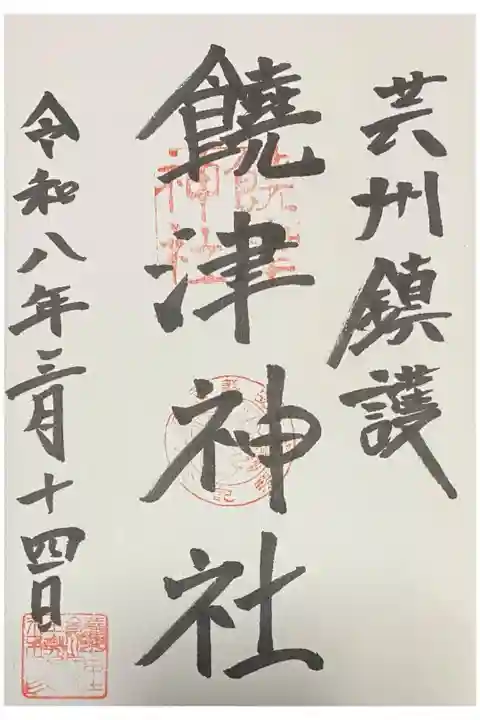 芸州鎮護
饒津神社
令和八年三月十四日